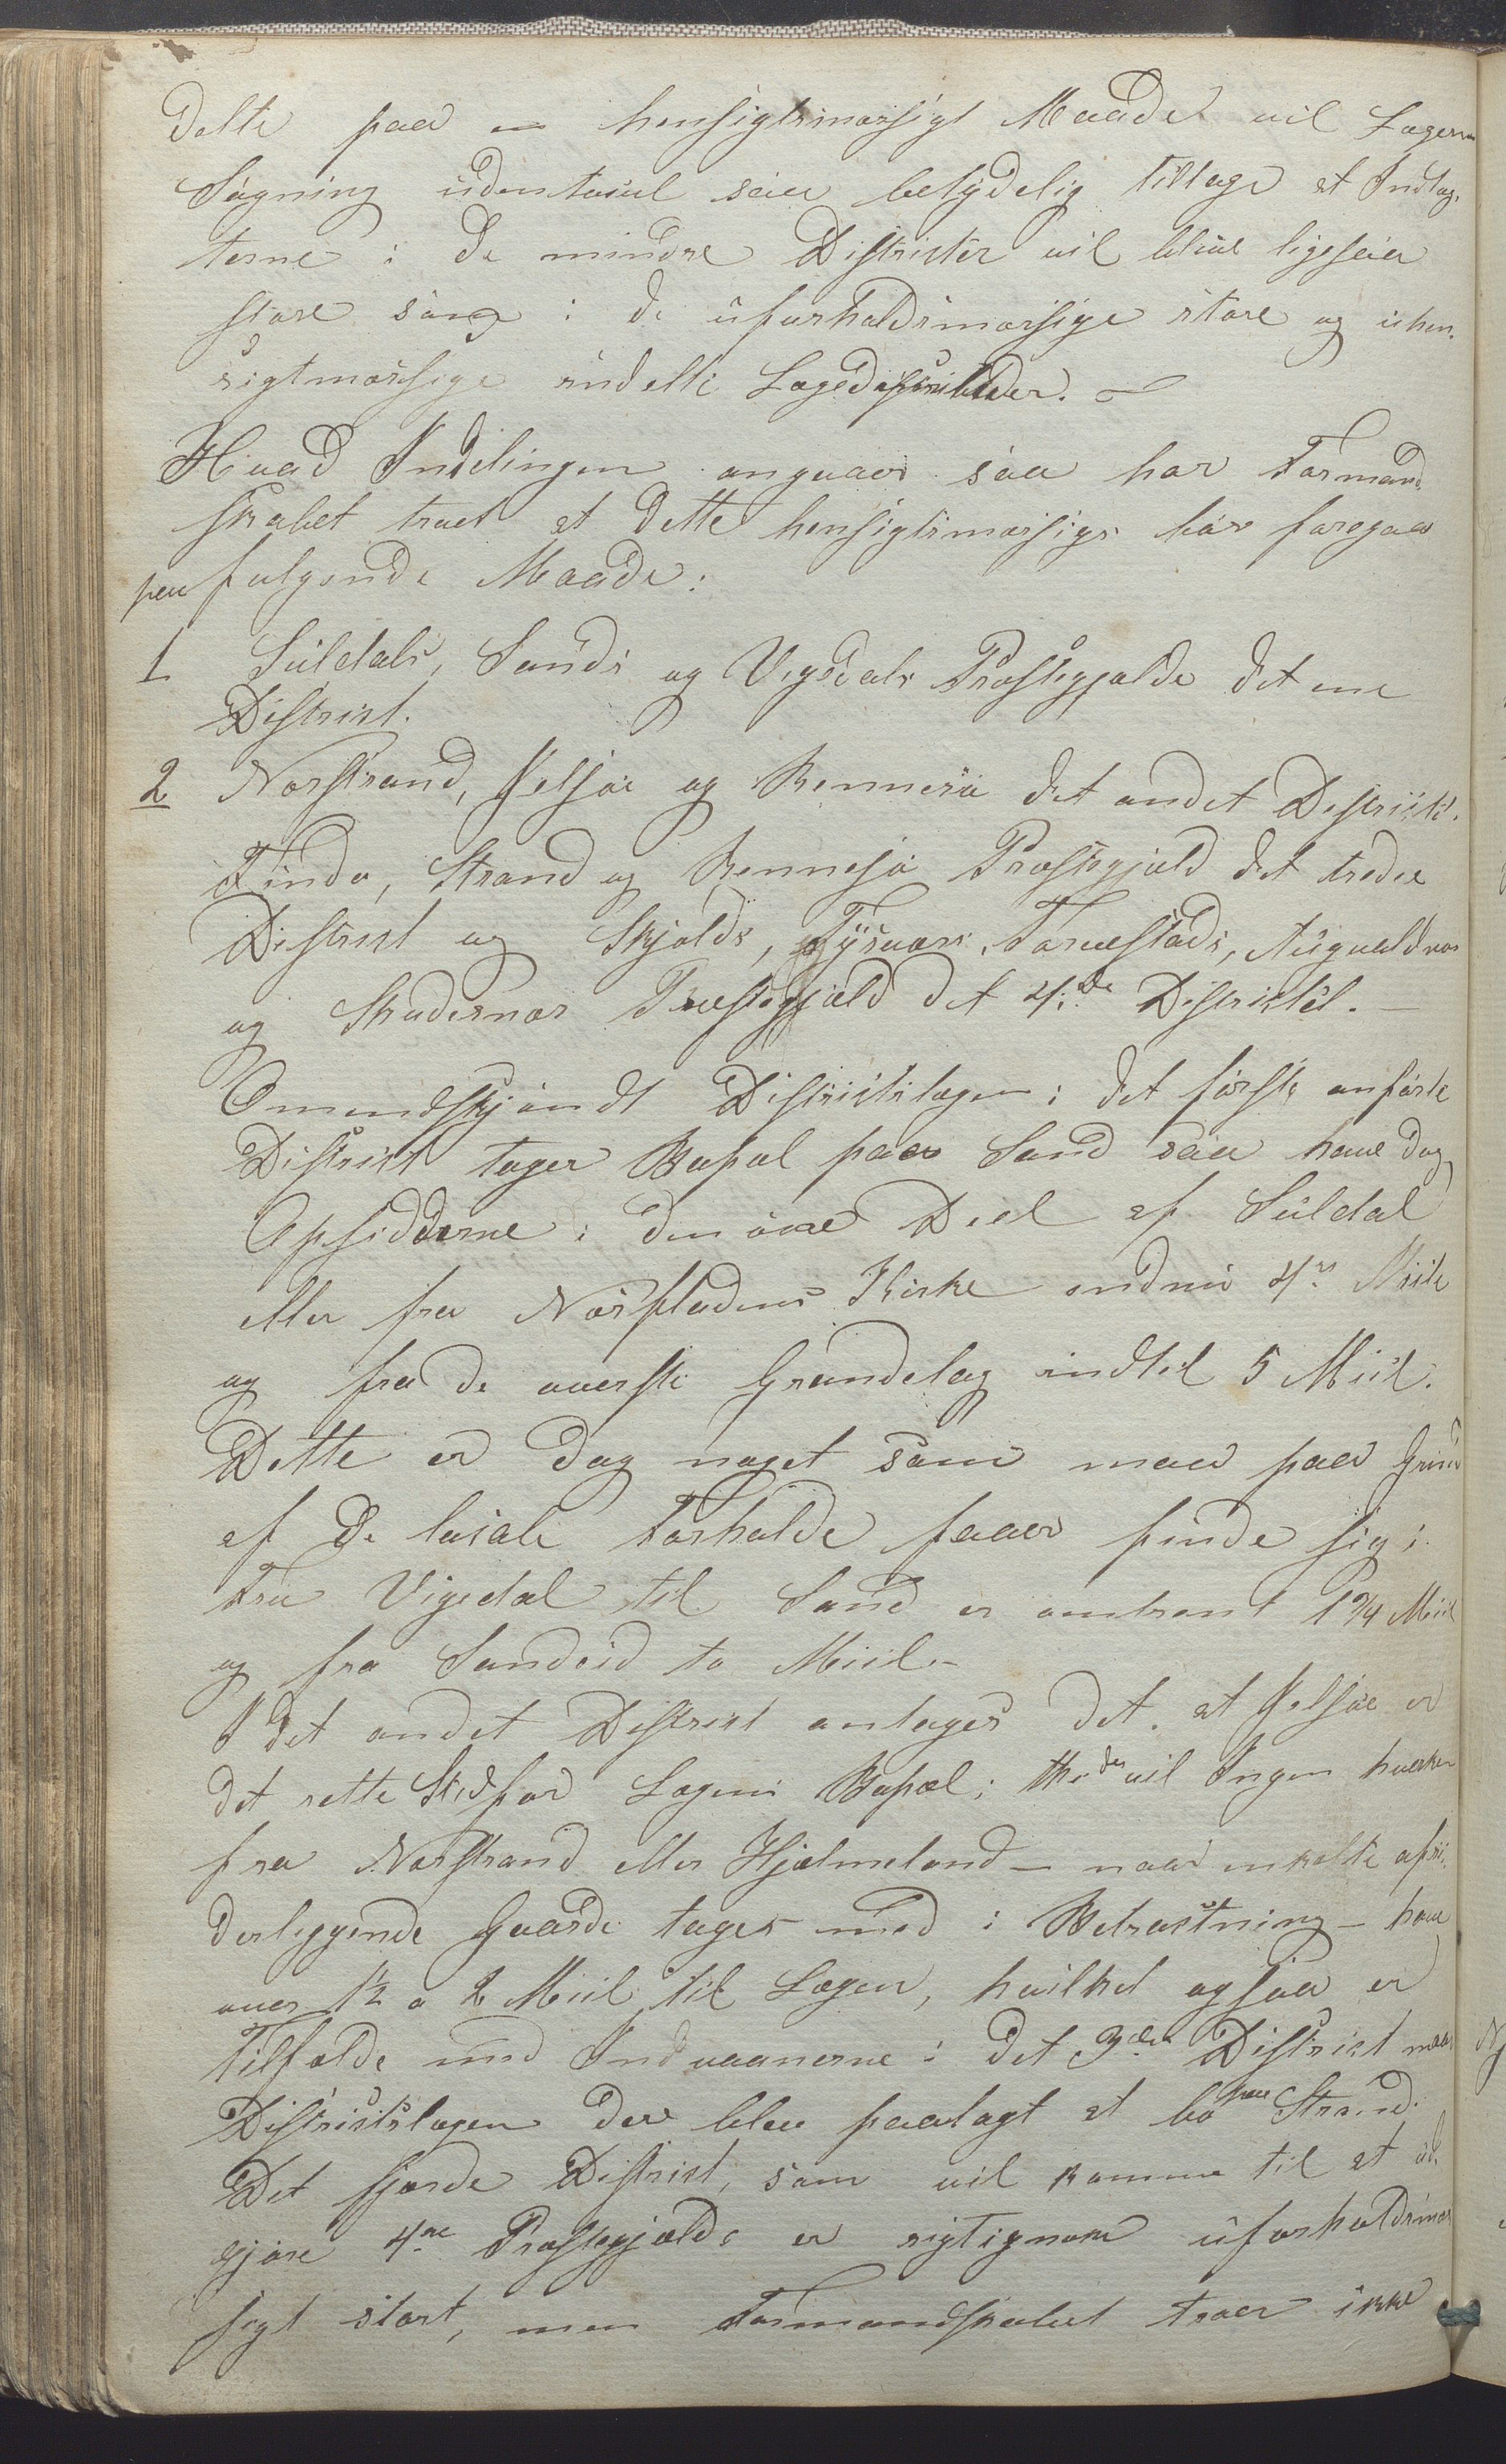 delte paa en hensigtsmæsigt Maade vil Lægernes
Søgning uden tvivl saa betydelig tiltage at Indtæg-
terne i de mindre Districter vil blive ligesaa
store som i de uforholdsmæsige store og uhen-
sigtmæssige inddelte Lægedistrikter. —
Hvad Inddelingen angaaer saa har Formand-
skabet troet at dette hensigtsmæsigs bør foregaa
paa følgende Maade:
1 Suldals, Sands og Vigedals Præstegjælde det ene
District.
2 Nærstrand, Jelsøe og Rennesø det andet District.
Findø, Strand og Rennesø Præstegjæld det tredie
District og Skjolds, Tysvær, Torvestads, Augvaldnæs
og Skudesnæs Præstegjæld det 4de District. —
Omendskjøndt Districtslægen i det første anførte
District tager Bopæl paa Sand saa have dog
Opsidderne i den øvre Deel af Suldal
eller fra Næsfladens Kirke endnu 4re Miile
og fra de øverste Grændelag indtil 5 Miil.
Dette er dog noget som man paa Grund
af de locale Forholde faaer finde sig i.
Fra Vigedal til Sand er omtrent 1 3/4 Miil
og fra Sandeid to Miil. —
I det andet District antages det, at Jelsøe er
det rette Sted for Lægens Bopæl; thi da vil Ingen hverken
fra Nærstrand eller Hjelmeland — naar enkelte afsi-
desliggende Gaarde tages med i Betragtning — have
over 1½ a 2 Miil til Lægen, hvilket ogsaa er
Tilfælde med Indvaanerne i det 3die District naar
Districtslægen der blev paalagt at bo paa Strand.
Det fjerde District, som vil komme til at ud-
gjøre 4re Præstegjælde er rigtignok uforholdsmæs-
sigt stort, men Formandskabet troer ikke